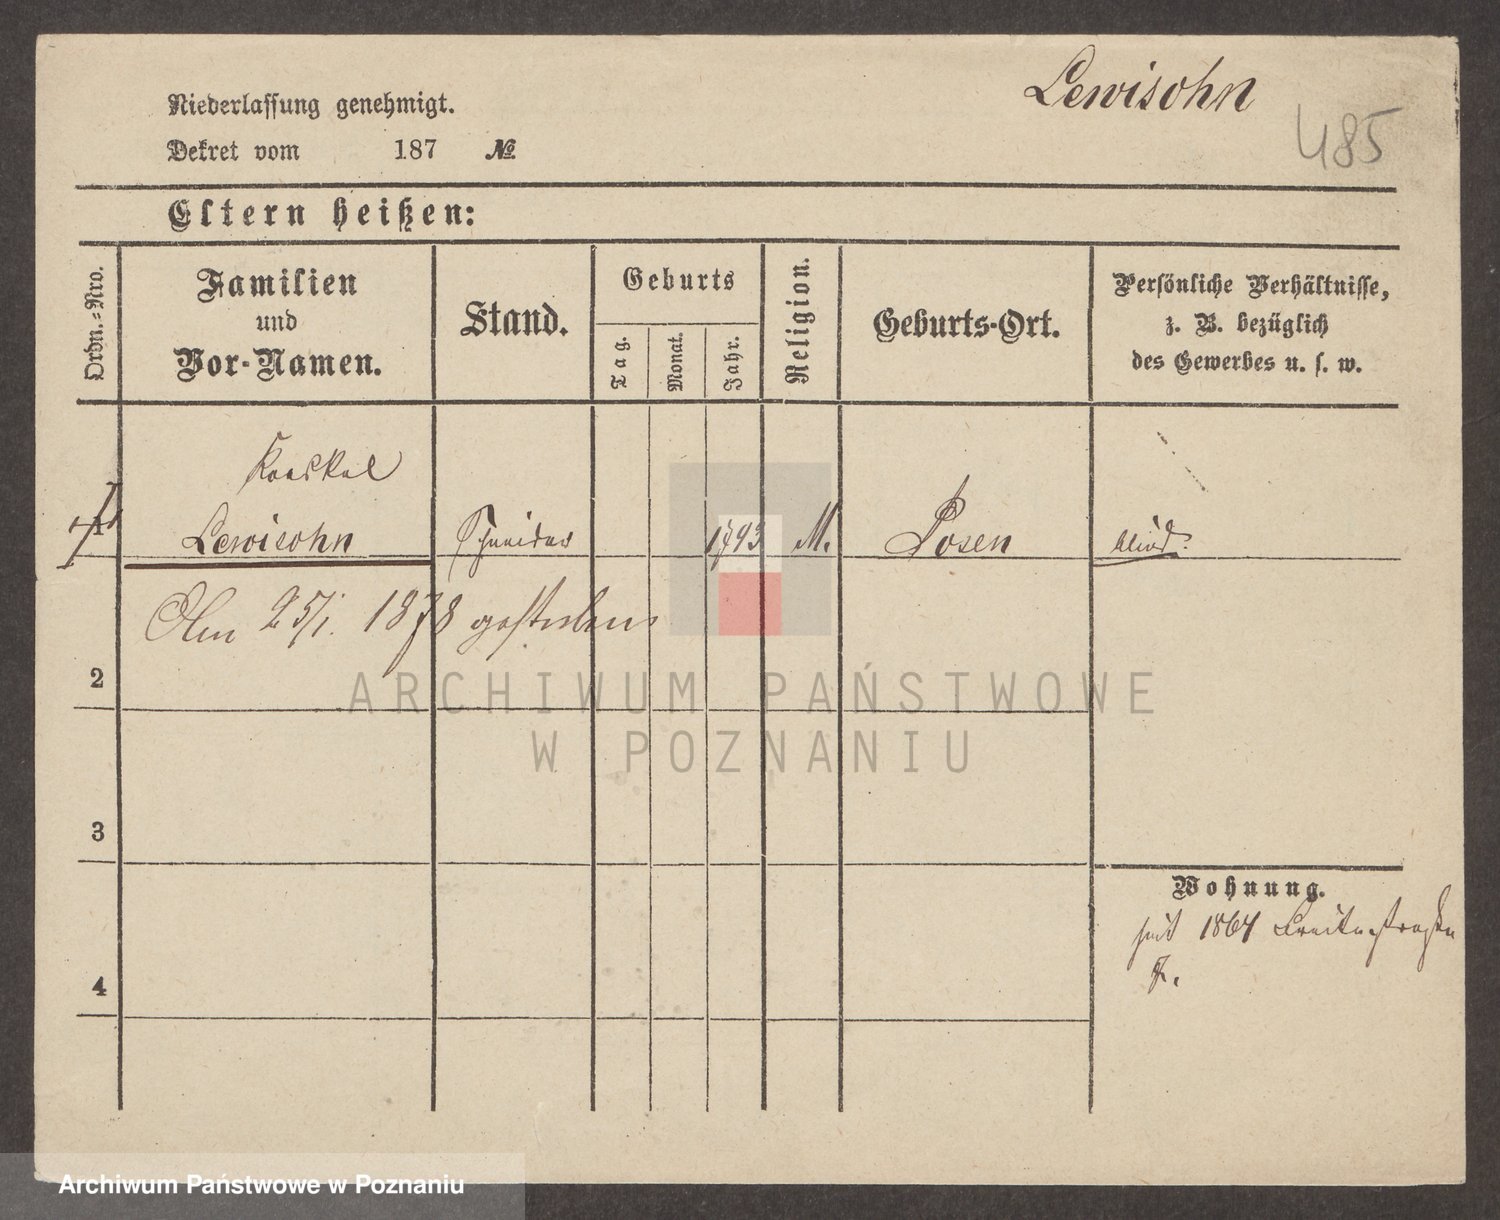 Lewisohn
485
Niederlassung genehmigt.
Dekret vom 187 №
Eltern heißen:
Ordn.-Nro.
Familien
und
Vor-Namen.
Stand.
Geburts
Tag.
Monat.
Jahr.
Religion.
Geburts-Ort.
Persönliche Verhältnisse,
z. B. bezüglich
des Gewerbes u. s. w.
Lewisohn Schneider 1793 M. Posen blind.
Am 25/1. 1878 gestorben
2
3
4
Wohnung.
seit 1864 Breitestraße
ARCHIWUM PAŃSTWOWE
W POZNANIU
Archiwum Państwowe w Poznaniu